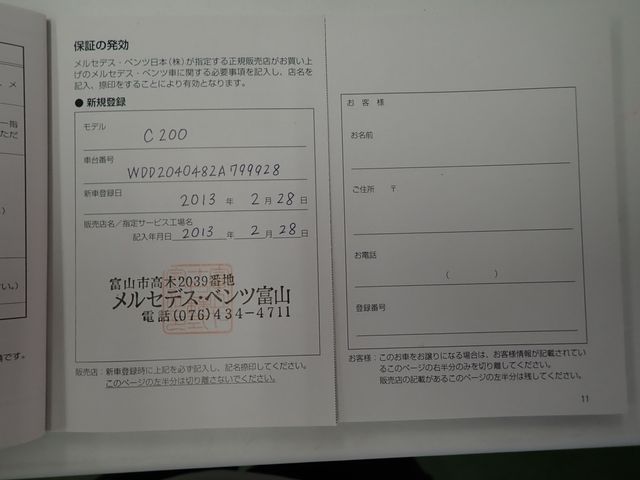 保証の発効
メルセデス・ベンツ日本(株)が指定する正規販売店がお買い上
げのメルセデス・ベンツ車に関する必要事項を記入し、店名を
記入、捺印をすることにより有効となります。
● 新規登録
モデル
C200
車台番号
WDD2040482A799928
新車登録日 2013 年 2 月 28 日
販売店名/指定サービス工場名
記入年月日 2013 年 2 月 28 日
富山市高木2039番地
メルセデス・ベンツ富山
電話(076)434-4711
販売店:新車登録時に上記を必ず記入し、記名捺印してください。
このページの左半分は切り離さないでください。
お客様
お名前
ご住所 〒
お電話
( )
登録番号
お客様:このお車をお譲りになる場合は、お客様情報が記載されてい
るこのページの右半分のみを切り離してください。
販売店の記載があるこのページの左半分は残してください。
11